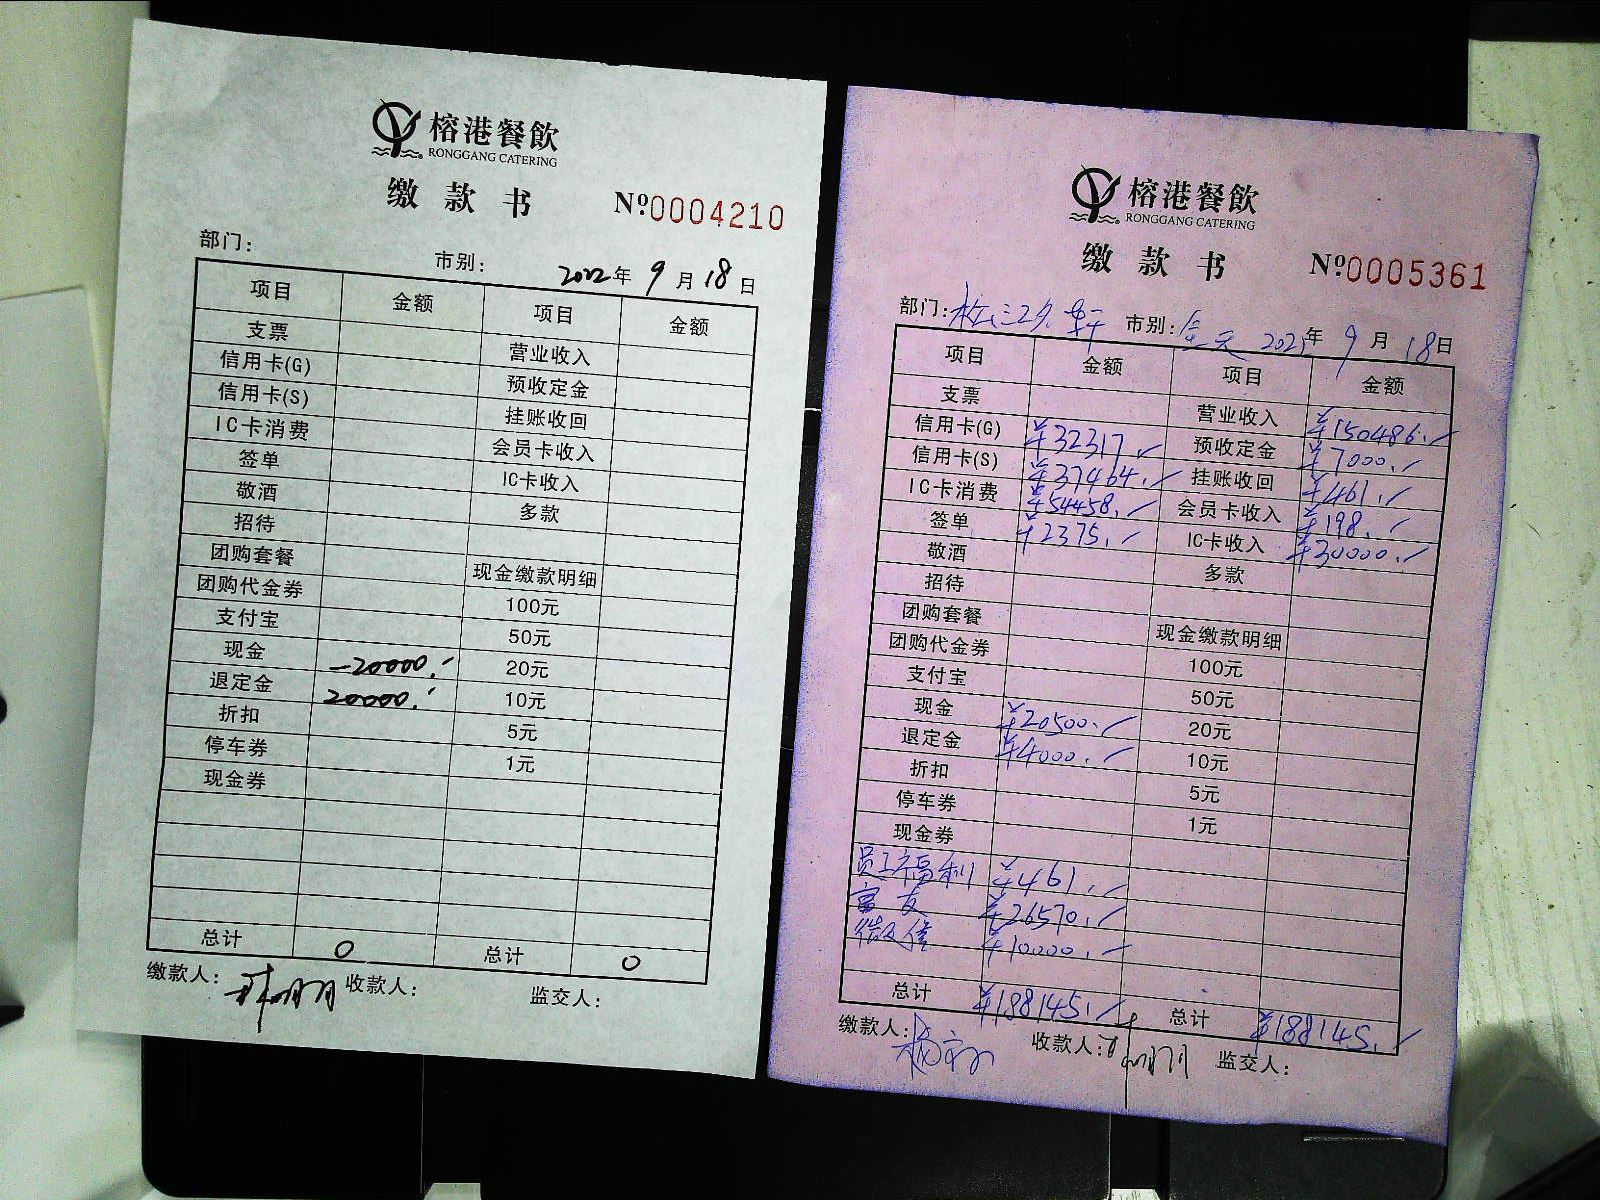 榕港餐飲
RONGGANG CATERING
缴款书 Nº0004210
部门： 市别： 2022年9月18日
项目 金额 项目 金额
支票 营业收入
信用卡(G) 预收定金
信用卡(S) 挂账收回
IC卡消费 会员卡收入
签单 IC卡收入
敬酒 多款
招待
团购套餐 现金缴款明细
团购代金券 100元
支付宝 50元
现金 -20000.- 20元
退定金 20000.- 10元
折扣 5元
停车券 1元
现金券
总计 0 总计 0
缴款人： 收款人： 监交人：
榕港餐飲
RONGGANG CATERING
缴款书 Nº0005361
部门： 市别：全天 2022年9月18日
项目 金额 项目 金额
支票 营业收入 ¥150486.-
信用卡(G) ¥32317.- 预收定金 ¥7000.-
信用卡(S) ¥37464.- 挂账收回 ¥461.-
IC卡消费 ¥54458.- 会员卡收入 ¥198.-
签单 ¥2375.- IC卡收入 ¥30000.-
敬酒 多款
招待
团购套餐 现金缴款明细
团购代金券 100元
支付宝 50元
现金 ¥20500.- 20元
退定金 ¥4000.- 10元
折扣 5元
停车券 1元
现金券
员工福利 ¥461.-
¥26570.-
微信 ¥10000.-
总计 ¥188145.- 总计 ¥188145.-
缴款人： 收款人： 监交人：